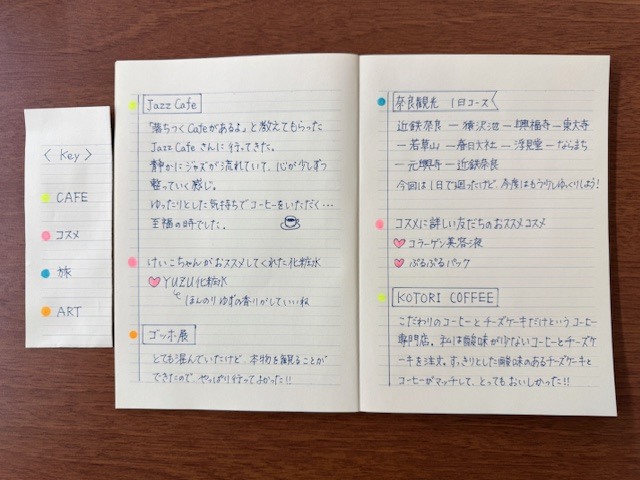 〈 Key 〉
CAFE
コスメ
旅
ART
Jazz Cafe
「落ちつくCafeがあるよ」と教えてもらった
Jazz Cafeさんに行ってきた。
静かにジャズが流れていて、心が少しずつ
整っていく感じ。
ゆったりとした気持ちでコーヒーをいただく…
至福の時でした。
けいこちゃんがおススメしてくれた化粧水
YUZU化粧水
ほんのりゆずの香りがしていいね
ゴッホ展
とても混んでいたけど、本物を観ることが
できたので、やっぱり行ってよかった!!
奈良観光 1日コース
近鉄奈良 ー 猿沢池 ー 興福寺 ー 東大寺
ー 若草山 ー 春日大社 ー 浮見堂 ー ならまち
ー 元興寺 ー 近鉄奈良
今回は1日で回ったけど、今度はもう少しゆっくりしよう!
コスメに詳しい友だちのおススメコスメ
コラーゲン美容液
ぷるぷるパック
KOTORI COFFEE
こだわりのコーヒーとチーズケーキだけというコーヒー
専門店。私は酸味が少ないコーヒーとチーズケ
ーキを注文。すっきりとした酸味のあるチーズケーキと
コーヒーがマッチして、とってもおいしかった!!